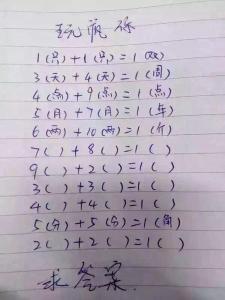 玩疯你
1(只)+1(只)=1(双)
3(天)+4(天)=1(周)
4(点)+9(点)=1(点)
5(月)+7(月)=1(年)
6(两)+10(两)=1(斤)
7( )+8( )=1( )
9( )+2( )=1( )
3( )+3( )=1( )
4( )+4( )=1( )
5( )+5( )=1( )
2( )+2( )=1( )
求答案